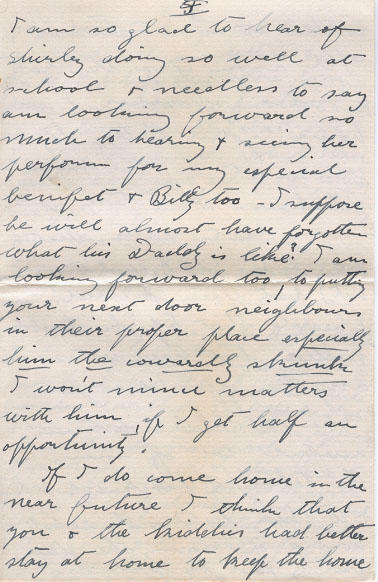 5
I am so glad to hear of
Shirley doing so well at
school & needless to say
am looking forward so
much to hearing & seeing her
perform for my especial
benifet & Billy too - I suppose
he will almost have forgotten
what his Daddy is like? I am
looking forward too, to putting
your next door neighbours
in their proper place especially
him the cowardly skunk
I won't mince matters
with him, if I get half an
opportunity.
If I do come home in the
near future I think that
you & the kiddies had better
stay at home to keep the home